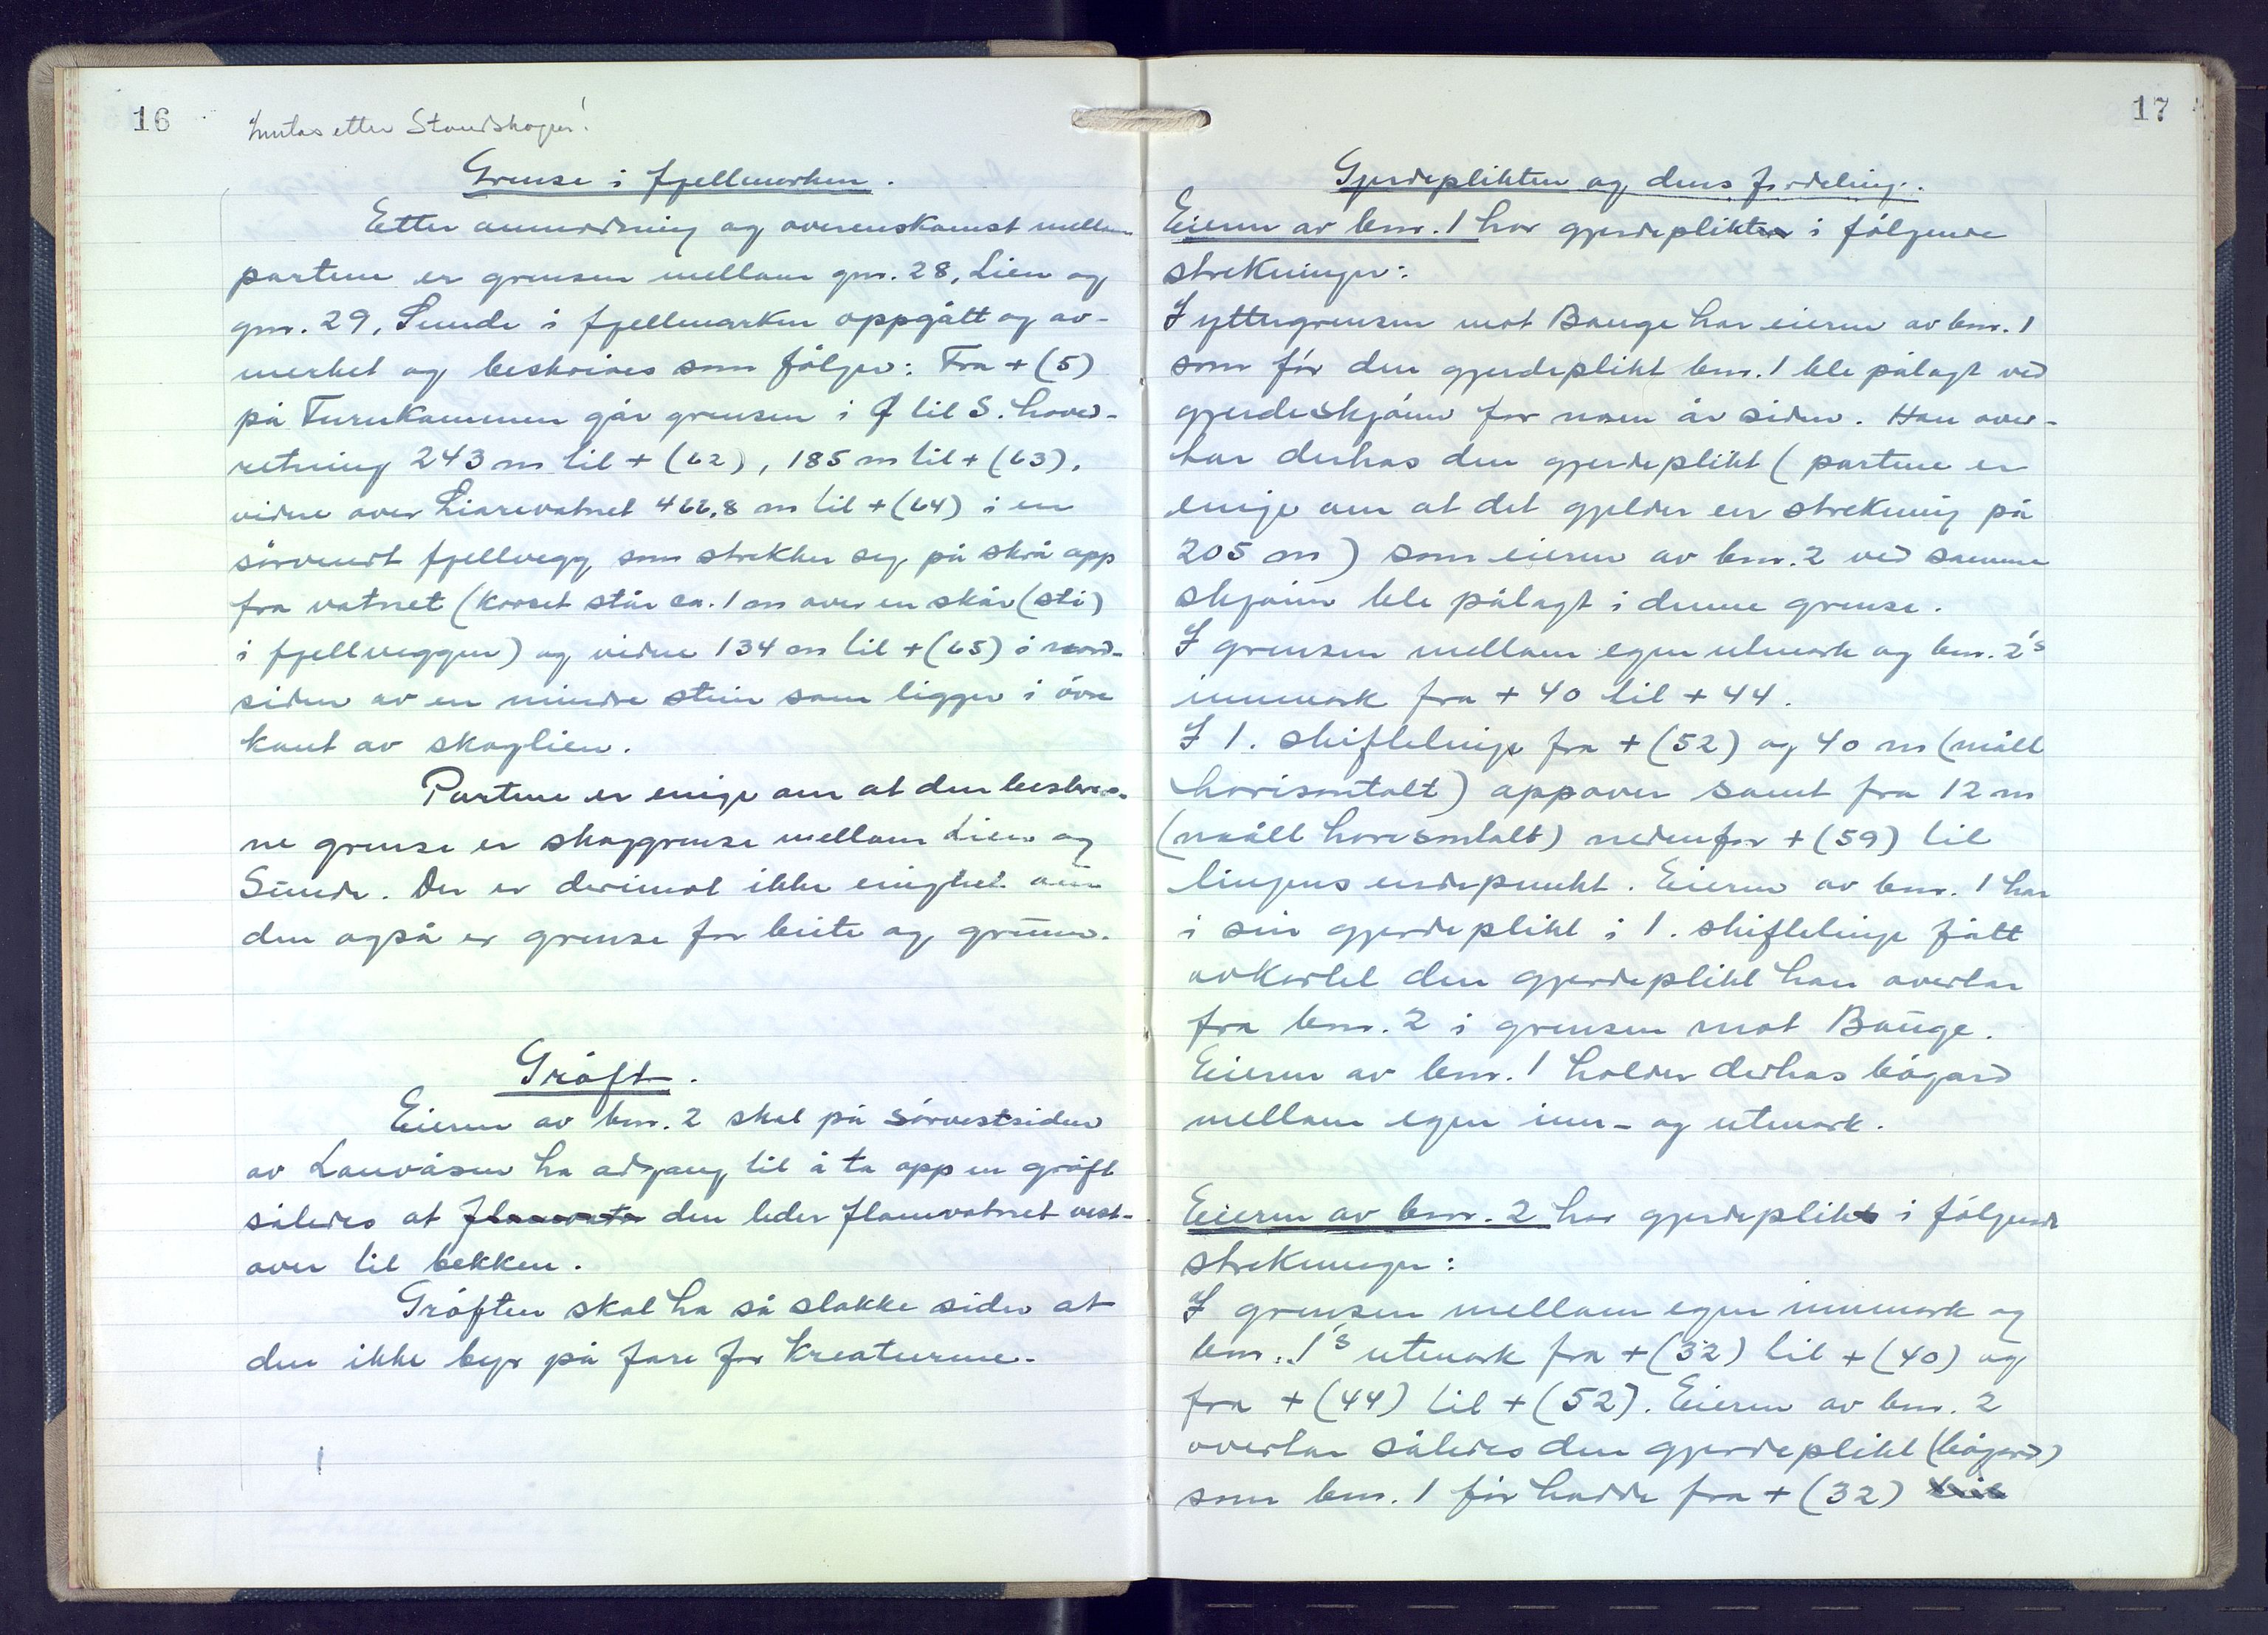 16
etter Strandskogen!
Grense i fjellmarken.
Etter anmodning og overenskomst mellem
partene er grensen mellom gnr. 28, Lien og
gnr. 29, Sunde i fjellmarken oppgått og av-
merket og beskrives som følger: Fra + (5)
på Turnkammen går grensen i S. hoved-
retning 243 m til + (62), 185 m til + (63),
videre over Liarevatnet 466,8 m til + (64) i en
sørvendt fjellvegg som strekker seg på skrå opp
fra vatnet (korset står ca. 1 m over en skår (sti)
i fjellveggen) og videre 134 m til + (65) i nord-
siden av en mindre stein som ligger i øvre
kant av skoglien.
Partene er enige om at den beskrev-
ne grense er skoggrense mellom Lien og
Sunde. Der er derimot ikke enighet om
den også er grense for beite og grunn.
Grøft.
Eieren av bnr. 2 skal på sørvestsiden
av Lauvåsen ha adgang til å ta opp en grøft
således at flomvatn den leder flomvatnet vest-
over til bekken.
Grøften skal ha så slakke sider at
den ikke byr på fare for kreaturene.
17
Gjerdeplikten og dens fordeling.
Eieren av bnr. 1 har gjerdeplikten i følgende
strekninger:
I yttergrensen mot Bauge har eieren av bnr. 1
som før den gjerdeplikt bnr. 1 ble pålagt ved
gjerdeskjønn for noen år siden. Han over-
tar derhos den gjerdeplikt (partene er
enige om at det gjelder en strekning på
205 m) som eieren av bnr. 2 ved samme
skjønn ble pålagt i denne grense.
I grensen mellom egen utmark og bnr. 2's
innmark fra + 40 til + 44.
I 1. skiftelinje fra + (52) og 40 m (målt
horisontalt) oppover samt fra 12 m
(målt horisontalt) nedenfor + (59) til
linjens endepunkt. Eieren av bnr. 1 har
i sin gjerdeplikt i 1. skiftelinje fått
avkortet den gjerdeplikt han overtar
fra bnr. 2 i grensen mot Bauge.
Eieren av bnr. 1 holder derhos bøgard
mellom egen inn- og utmark.
Eieren av bnr. 2 har gjerdeplikt i følgende
strekninger:
I grensen mellom egen innmark og
bnr. 1's utmark fra + (32) til + (40) og
fra + (44) til + (52). Eieren av bnr. 2
overtar således den gjerdeplikt (bøgard)
som bnr. 1 før hadde fra + (32) til